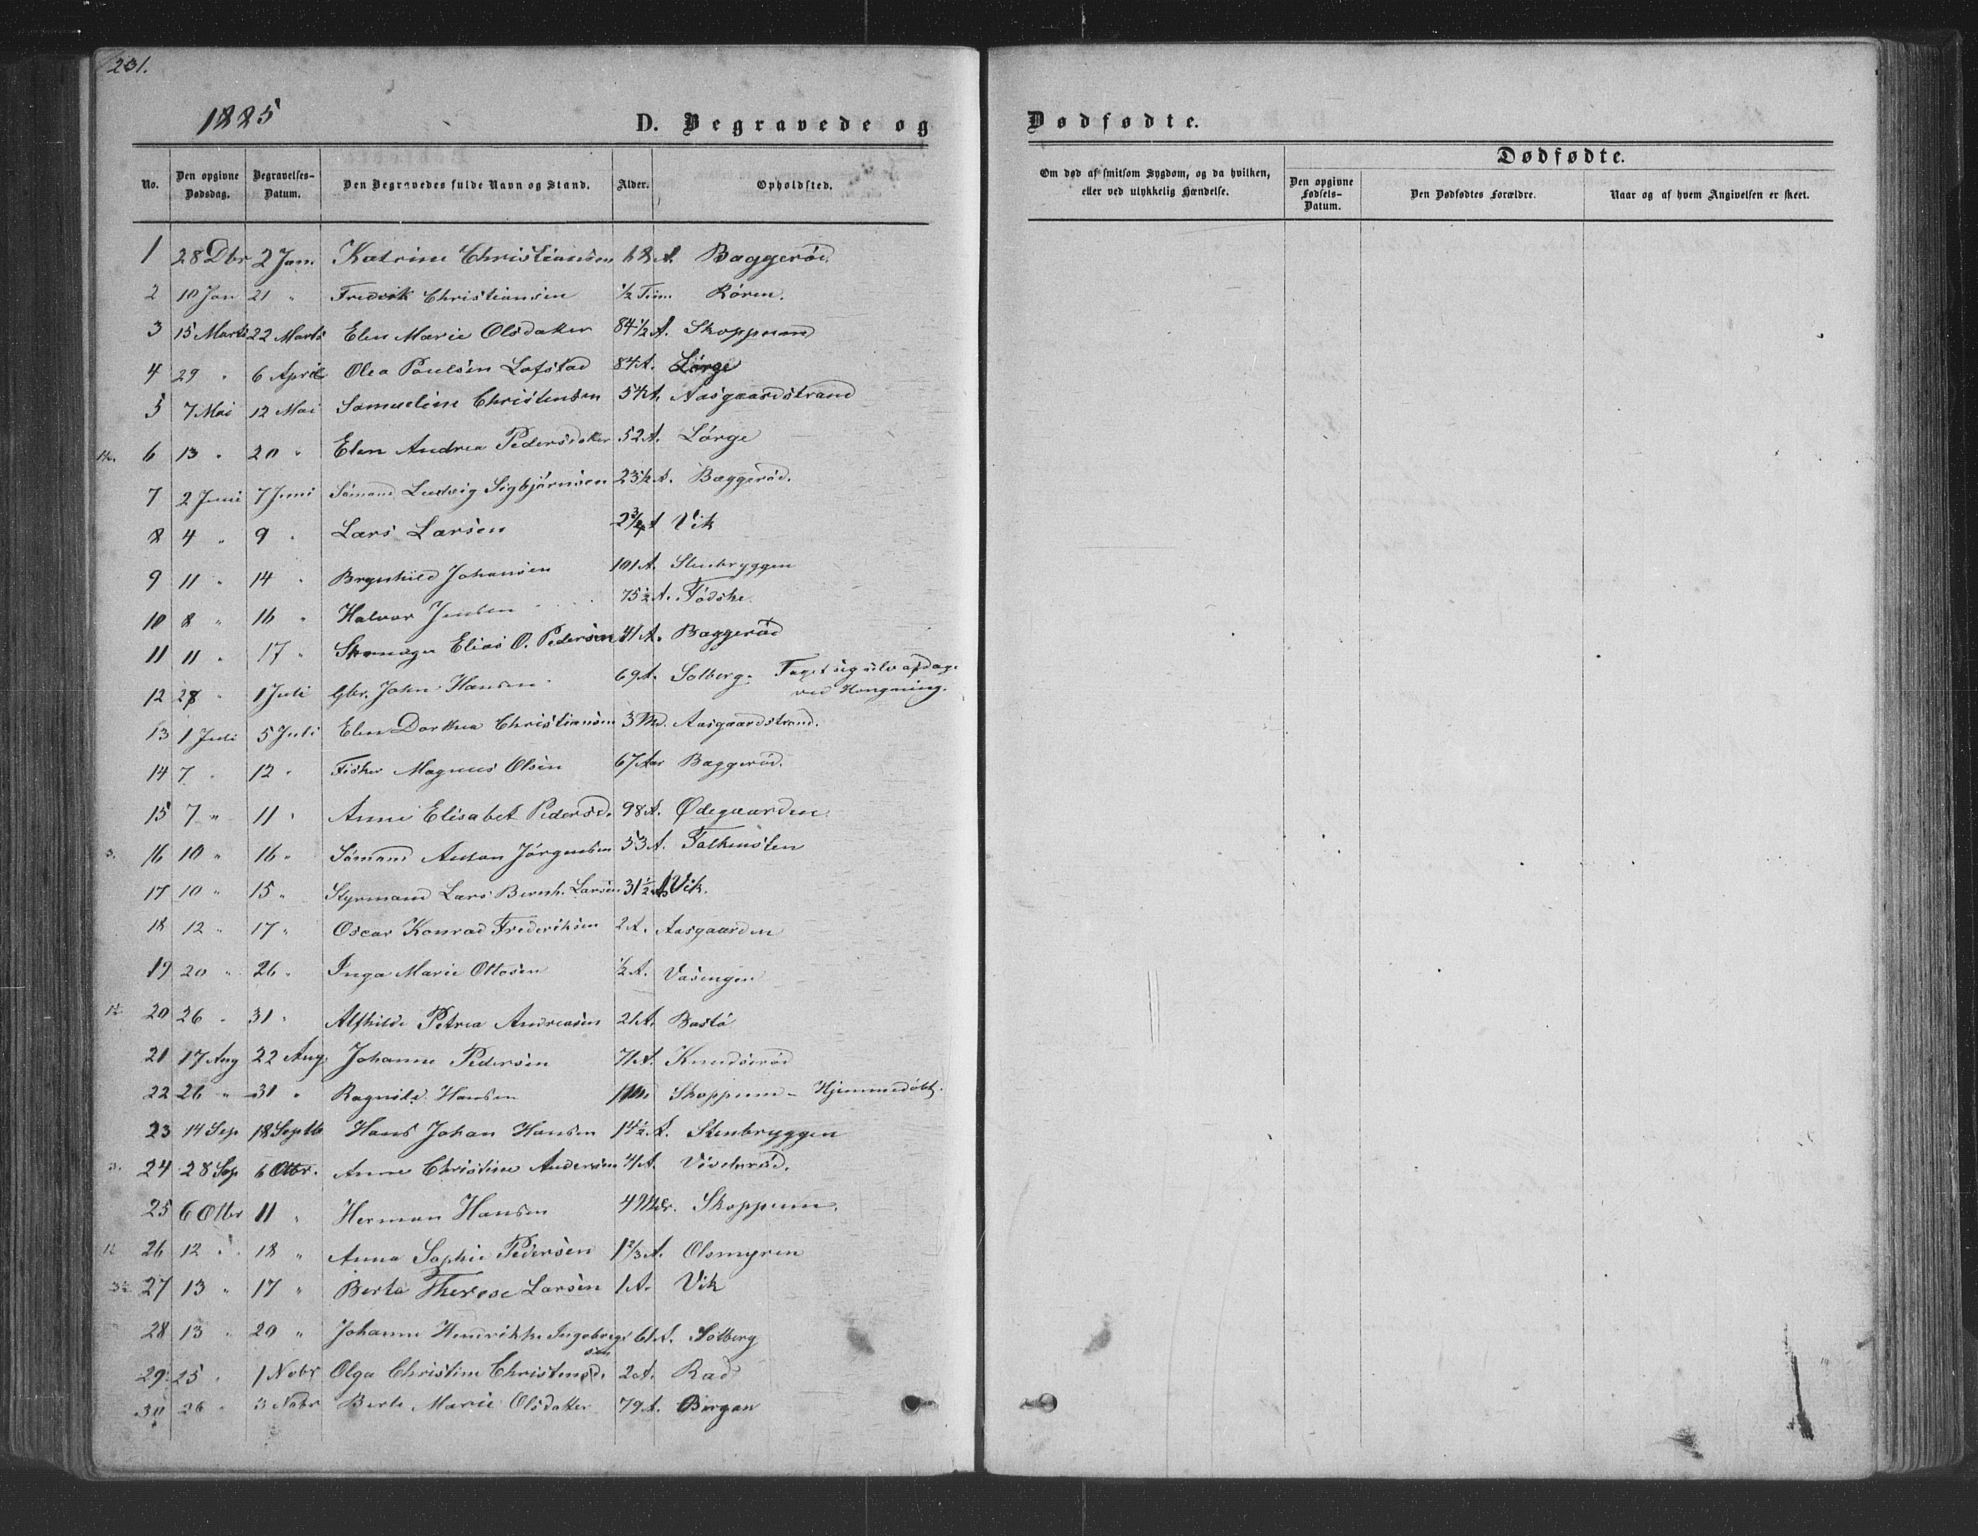 231.
1885
D. Begravede og
Dødfødte.
No. Den opgivne Dødsdag. Begravelses-Datum. Den Begravedes fulde Navn og Stand. Alder. Opholdsted.
Om død af smitsom Sygdom, og da hvilken, eller ved ulykkelig Hændelse.
Dødfødte.
Den opgivne Fødsels-Datum. Den Dødfødtes Forældre. Naar og af hvem Angivelsen er skeet.
1 28 Dbr 2 Jan. Katrine Christiansen A. Baggerød.
2 10 Jan 21 " Fredrik Christiansen 1/2 Tim. Røren.
3 15 Marts 22 Marts Elen Marie Olsdatter 84 1/2 A. Skoppum
4 29 " 6 April Olea Poulsen Lofstad 84 A. Lørge
5 7 Mai 12 Mai Samueline Christensen A. Aasgaardstrand
6 13 " 20 " Elen Andrea Pedersdatter 52 A. Lørge
7 2 Juni 7 Juni Sømand Ludvig Sigbjørnsen 23 1/2 A. Baggerød.
8 4 " 9 " Lars Larsen 2 3/4 A Vik
9 11 " 14 " Brynhild Johansen 101 A. Stenbryggen
10 8 " 16 " Halvor Jensen 75 1/2 A. Fødske.
11 11 " 17 " Skomager Elias O. Pedersen 41 A. Baggerød
12 28 " 1 Juli Gbr. John Hansen 69 A. Solberg. Taget sig selv afdage
ved Hængning.
13 1 Juli 5 Juli Elen Dorthea Christiansen 3 Md. Aasgaardstrand.
14 7 " 12 " Fisker Magnus Olsen 67 Aar Baggerød.
15 7 " 11 " Anne Elisabet Pedersd. 98 A. Ødegaarden.
3. 16 10 " 16 " Sømand Anton Jørgensen 53 A. Falkensten
17 10 " 15 " Styrmand Lars Bernh. Larsen 31 1/2 A. Vik.
18 12 " 17 " Oscar Konrad Frederiksen 2 A. Aasgaarden
19 20 " 26 " Inga Marie Ottosen 1/2 A. Vasengen
20 26 " 31 " Alfhilde Petrea Andreasen 21 A. Bastø
21 17 Aug 22 Aug. Johanne Pedersen 71 A. Knudsrød
22 26 " 31 " Ragnild Hansen Skoppum - Hjemmedøbt.
23 14 Sep 18 Septb Hans Johan Hansen 14 1/2 A. Stenbryggen
3. 24 28 Sep 6 Otbr. Anne Christine Andersen A. Viselrød.
25 6 Otbr 11 " Herman Hansen 4 Mdr. Skoppum.
26 12 " 18 " Anna Sophie Pedersen 1 2/3 A. Olsmyren
27 13 " 17 " Berte Therese Larsen 1 A. Vik
28 13 " 20 " Johanne Hendrikke Ingebregt
sen 61 A. Solberg
29 25 " 1 Nobr Olga Christine Christensd. 2 A. Rad
30 26 " 3 Nobr Berte Marie Olsdatter 79 A. Borgen